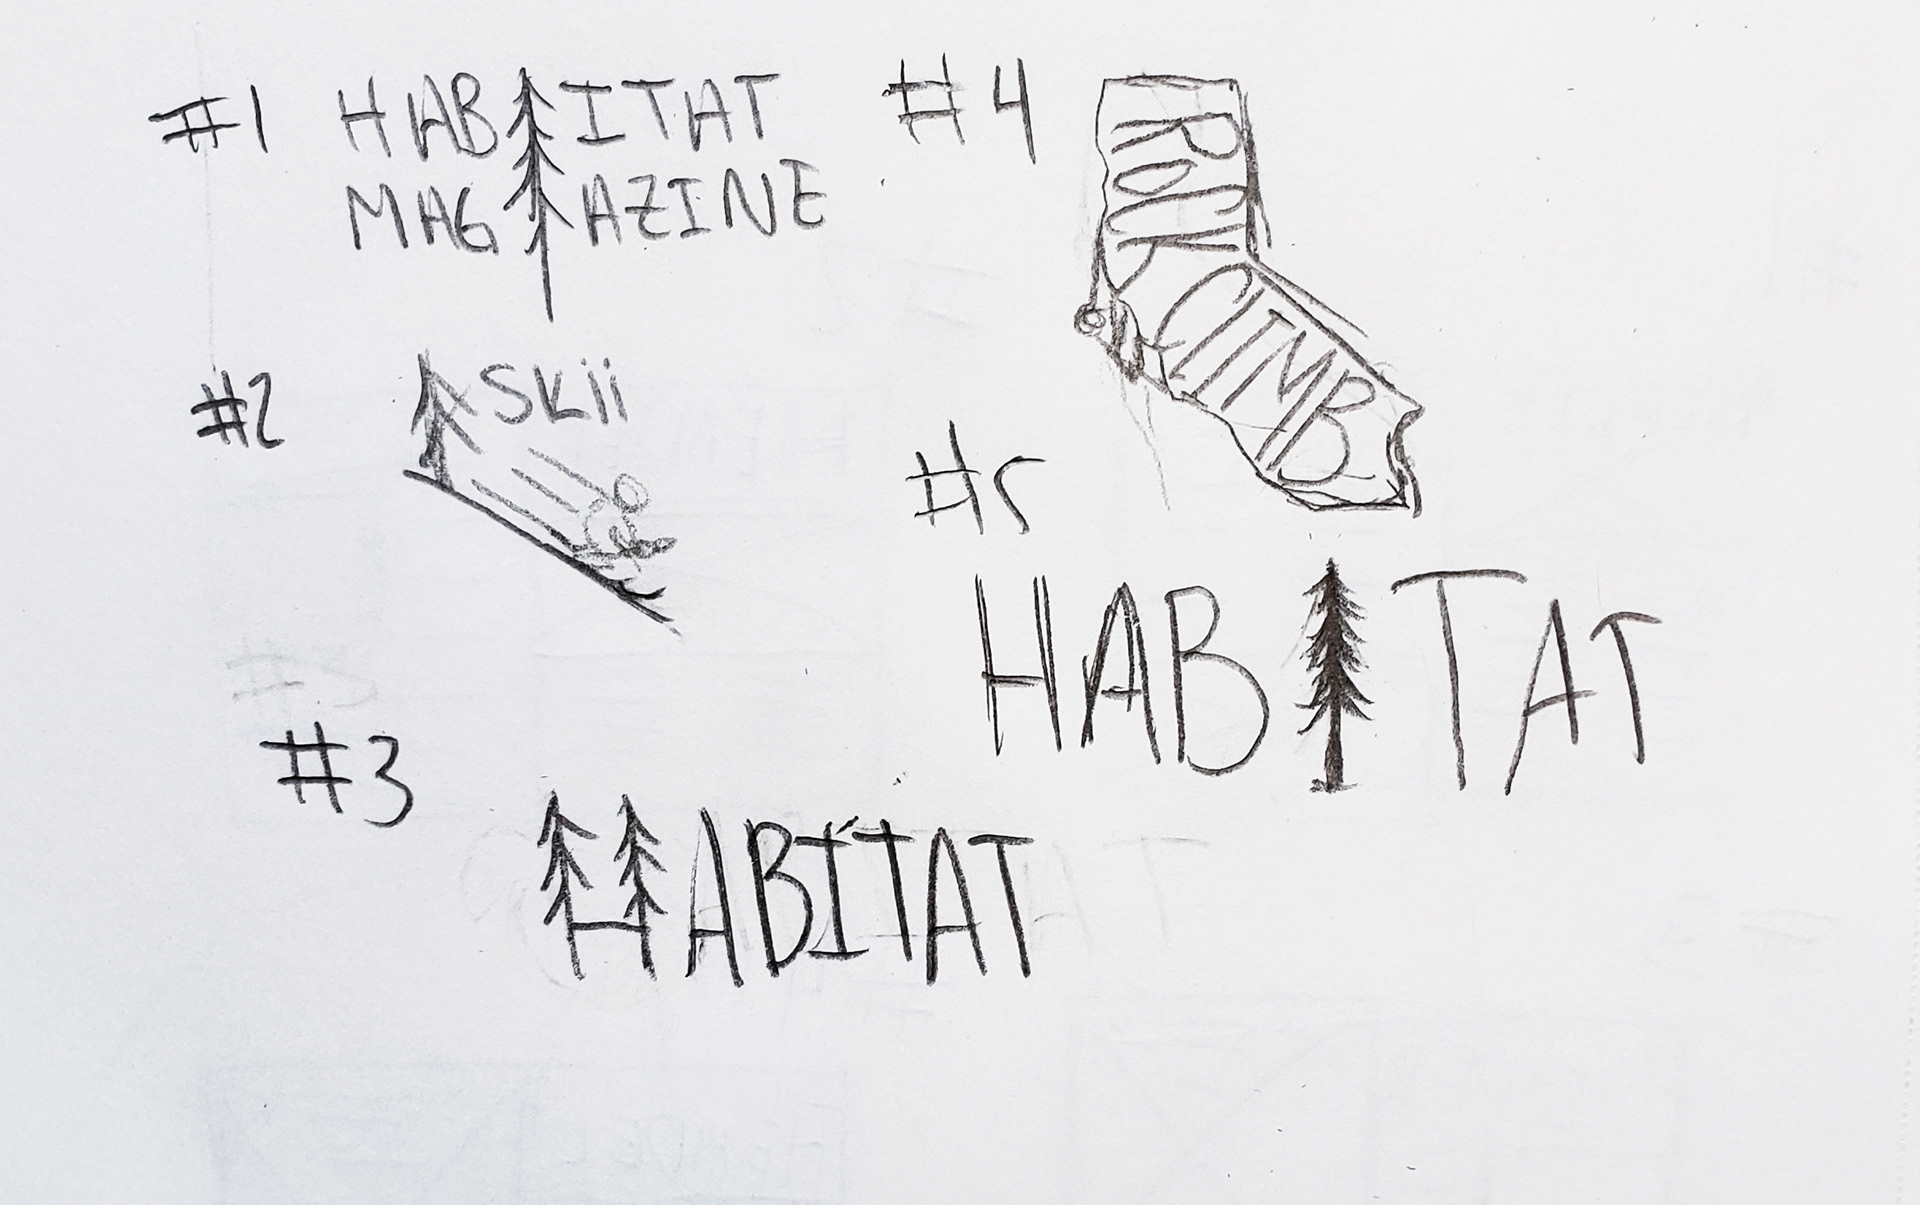 #1 HABITAT
MAGAZINE
#2 SKii
#3
HABITAT
#4
ROCK
CLIMB
#5
HABITAT